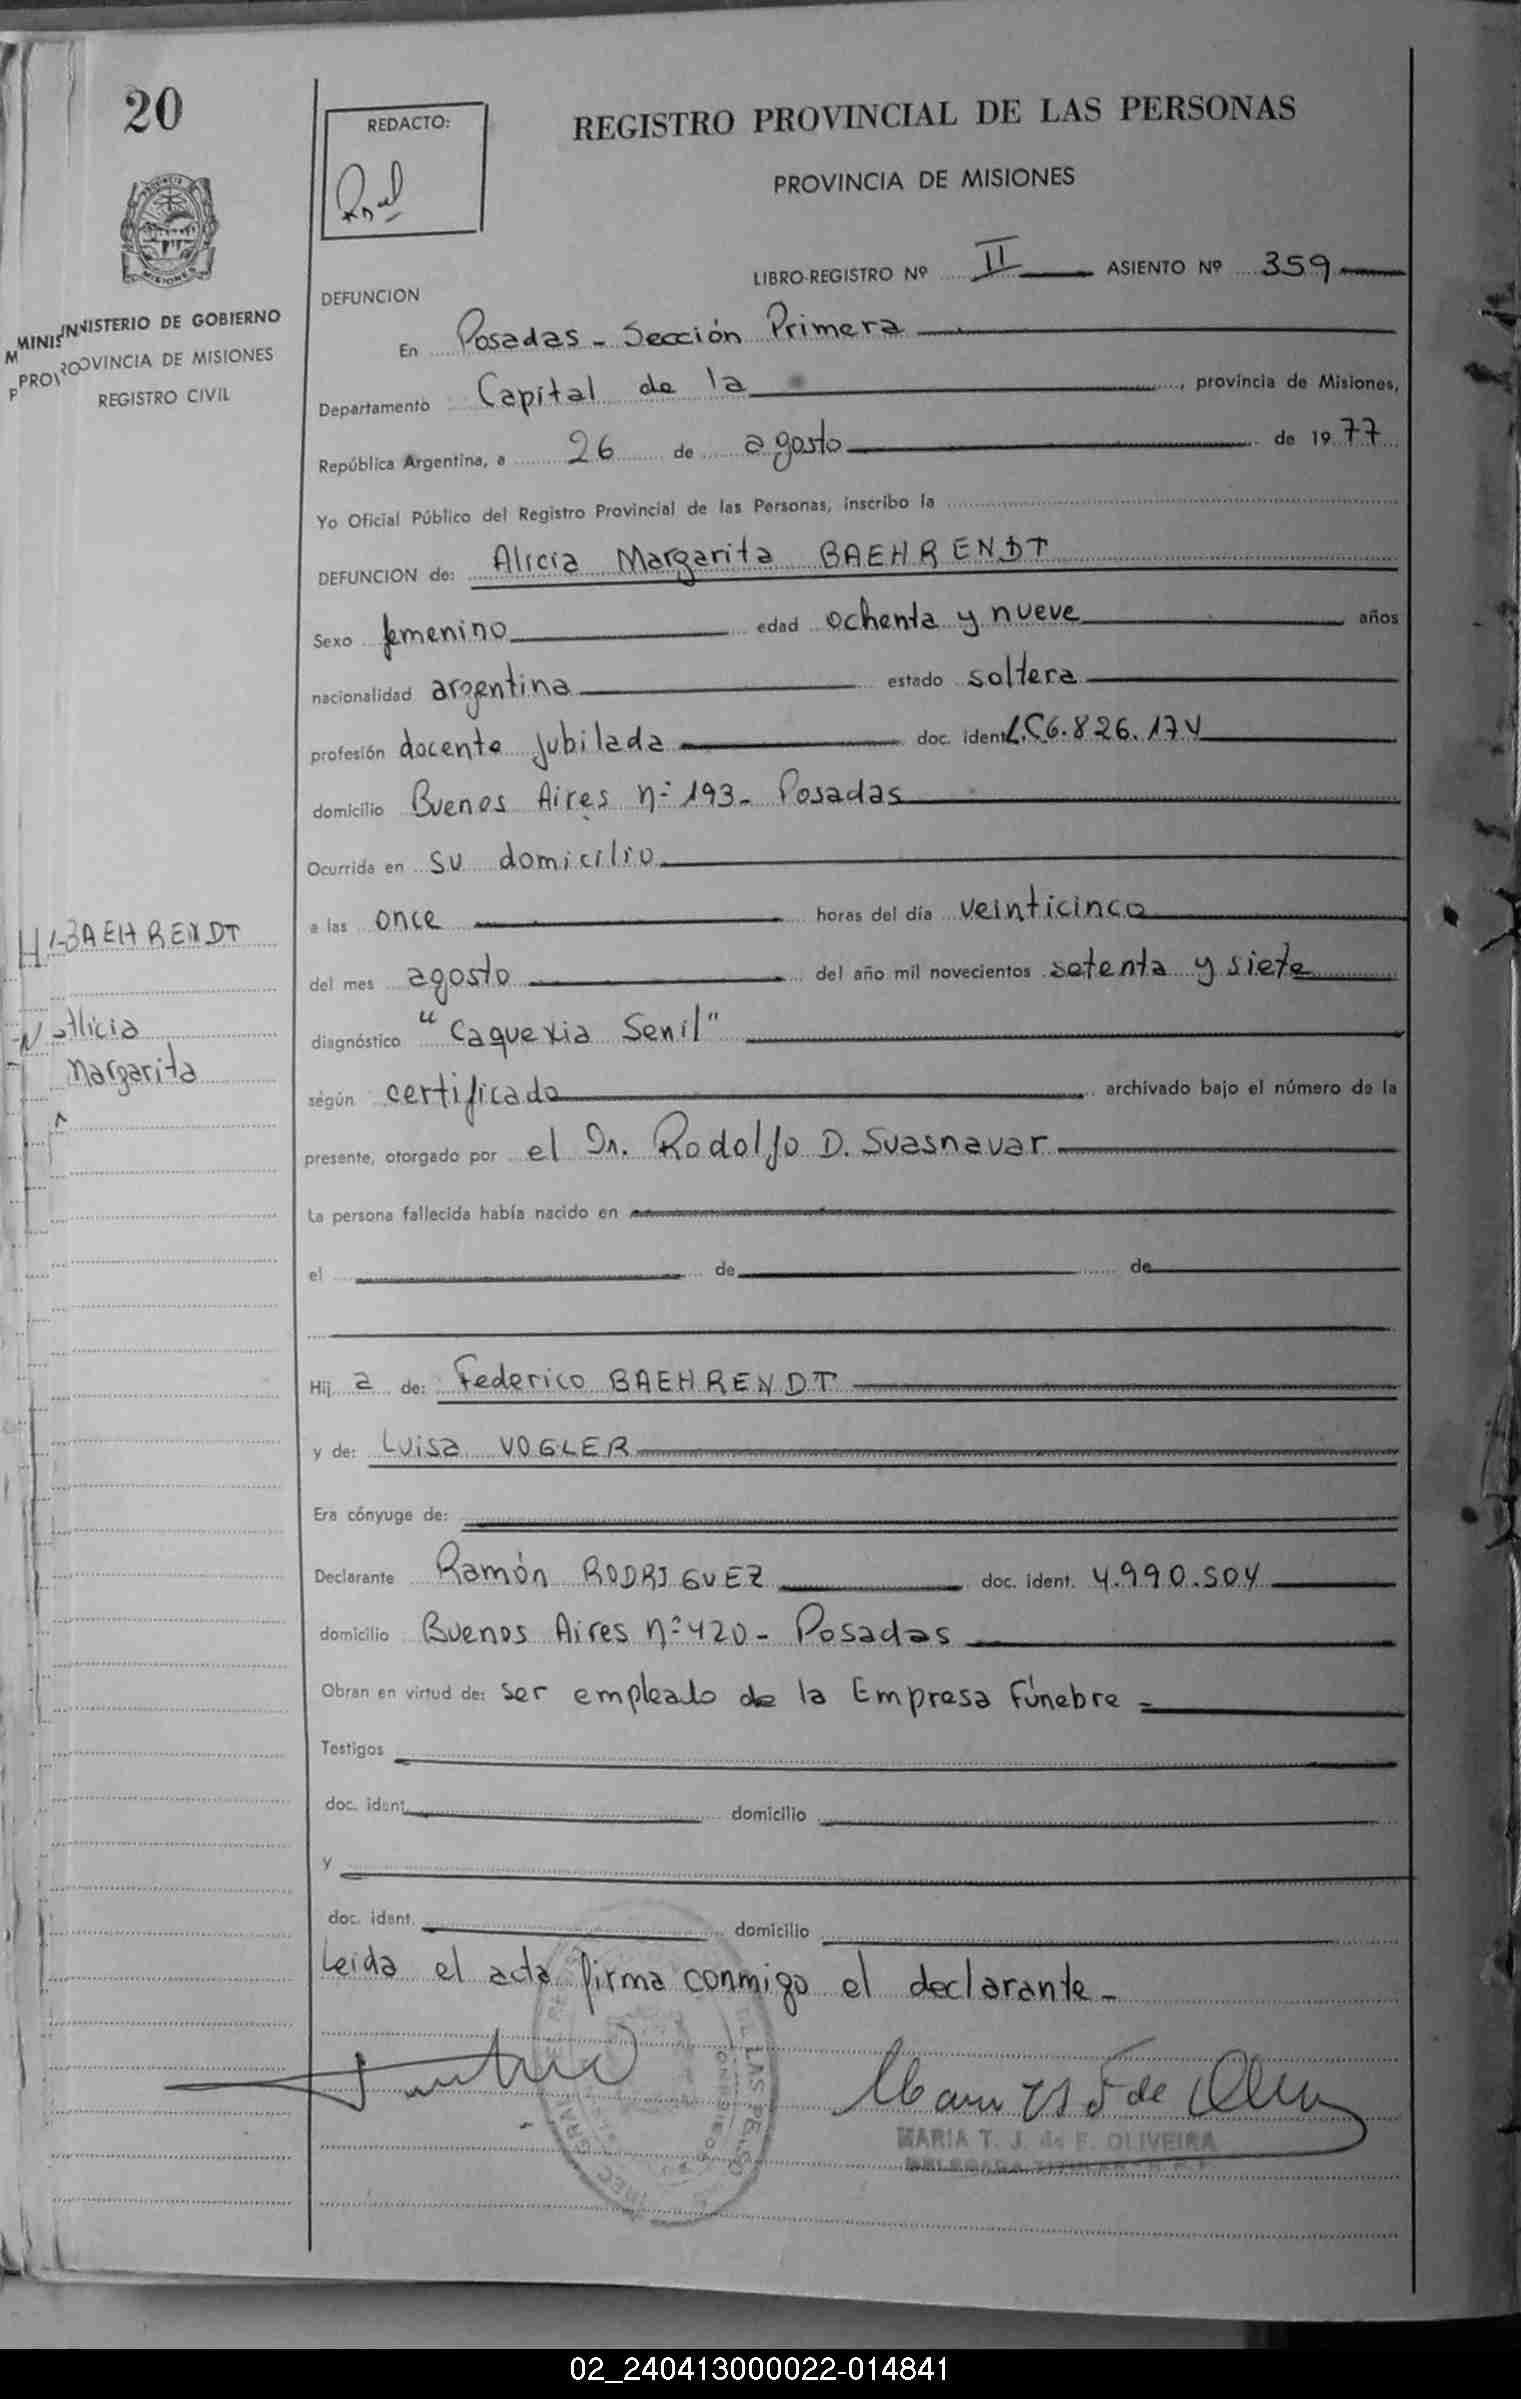 20
REDACTO:
REGISTRO PROVINCIAL DE LAS PERSONAS
PROVINCIA DE MISIONES
LIBRO-REGISTRO Nº II ASIENTO Nº 359
DEFUNCION
MINISTERIO DE GOBIERNO
PROVINCIA DE MISIONES
REGISTRO CIVIL
En Posadas - Sección Primera
Departamento Capital de la, provincia de Misiones,
República Argentina, a 26 de agosto de 1977
Yo Oficial Público del Registro Provincial de las Personas, inscribo la
DEFUNCION de: Alicia Margarita BAEHRENDT
Sexo femenino edad ochenta y nueve años
nacionalidad argentina estado soltera
profesión docente jubilada doc. ident. L.C 6.826.174
domicilio Buenos Aires nº 193 - Posadas
Ocurrida en su domicilio
a las once horas del día veinticinco
BAEHRENDT
del mes agosto del año mil novecientos setenta y siete
Alicia
diagnóstico "Caquexia Senil"
Margarita
ségún certificado archivado bajo el número de la
presente, otorgado por el Dr. Rodolfo D. Suasnavar
La persona fallecida había nacido en
el de de
Hij a de: Federico BAEHRENDT
y de: Luisa VOGLER
Era cónyuge de:
Declarante Ramón RODRIGUEZ doc. ident. 4.990.504
domicilio Buenos Aires nº 420 - Posadas
Obran en virtud de: ser empleado de la Empresa Fúnebre =
Testigos
doc. ident. domicilio
y
doc. ident. domicilio
Leida el acta firma conmigo el declarante -
MARIA T. J. de F. OLIVEIRA
DELEGADA TITULAR
02_240413000022-014841